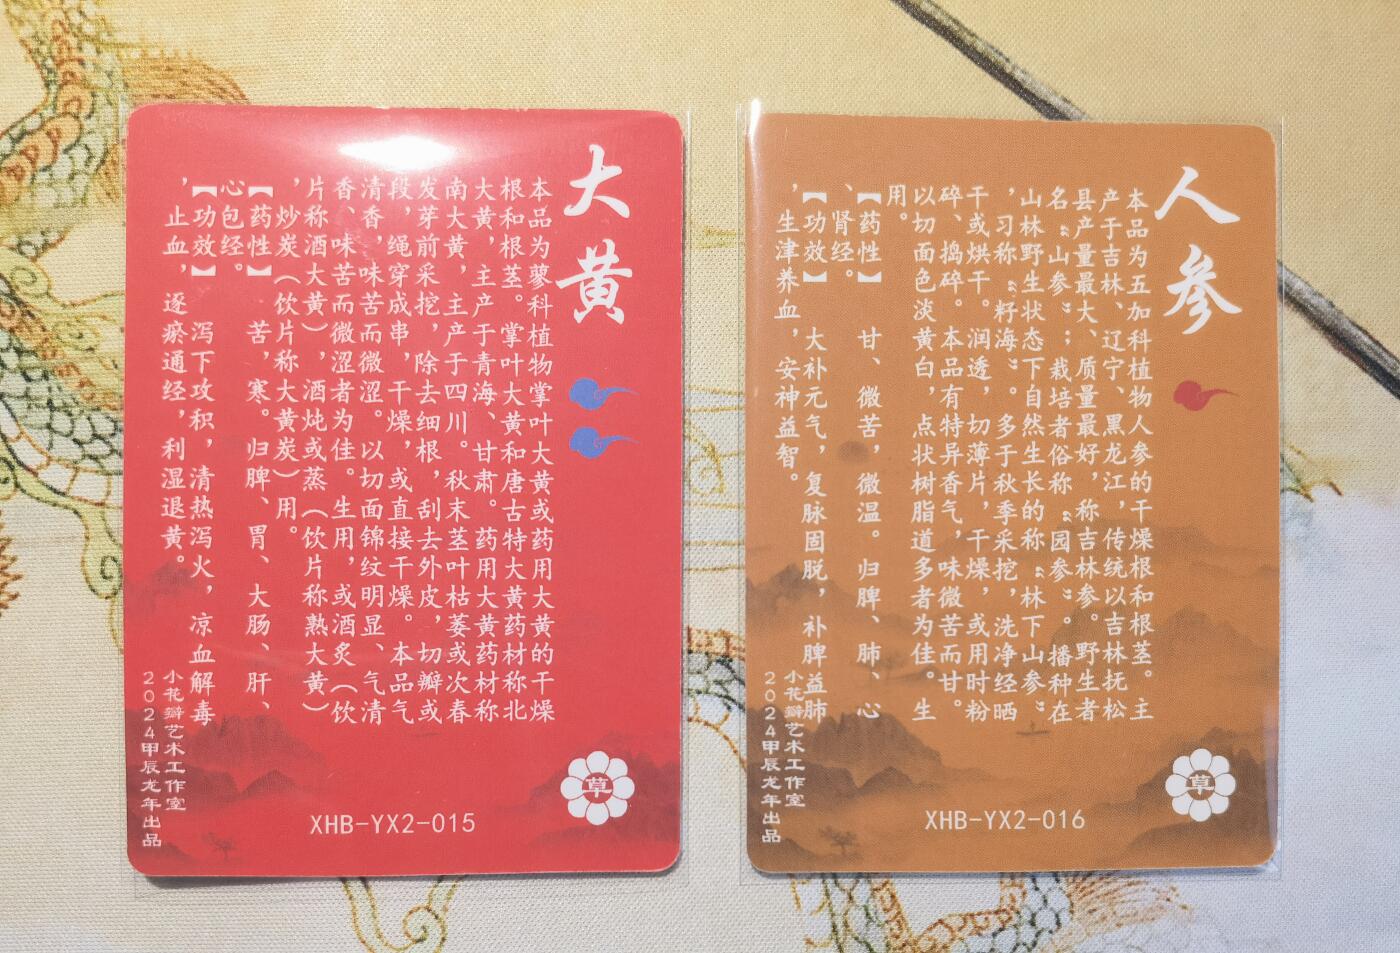 大黄
本品为蓼科植物掌叶大黄或药用大黄的干燥
根和根茎。掌叶大黄和唐古特大黄药材称北
大黄，主产于青海、甘肃。药用大黄药材称
南大黄，主产于四川。秋末茎叶枯萎或次春
发芽前采挖，除去细根，刮去外皮，切瓣或
段，绳穿成串，干燥，或直接干燥。本品气
清香，味苦而微涩。以切面锦纹明显、气清
香、味苦而微涩者为佳。生用，或酒炙（饮
片称酒大黄），酒炖或蒸（饮片称熟大黄）
，炒炭（饮片称大黄炭）用。
【药性】 苦，寒。归脾、胃、大肠、肝、
心包经。
【功效】 泻下攻积，清热泻火，凉血解毒
，止血，逐瘀通经，利湿退黄。
小花瓣艺术工作室
2024甲辰龙年出品
XHB-YX2-015
草
人参
本品为五加科植物人参的干燥根和根茎。主
产于吉林、辽宁、黑龙江，传统以吉林抚松
县产量最大、质量最好，称吉林参。野生者
名“山参”；栽培者俗称“园参”。播种在
山林野生状态下自然生长的称“林下山参”
，习称“籽海”。多于秋季采挖，洗净经晒
干或烘干。润透，切薄片，干燥，或用时粉
碎、捣碎。本品有特异香气，味微苦而甘。
以切面色淡黄白，点状树脂道多者为佳。生
用。
【药性】 甘、微苦，微温。归脾、肺、心
、肾经。
【功效】 大补元气，复脉固脱，补脾益肺
，生津养血，安神益智。
小花瓣艺术工作室
2024甲辰龙年出品
XHB-YX2-016
草